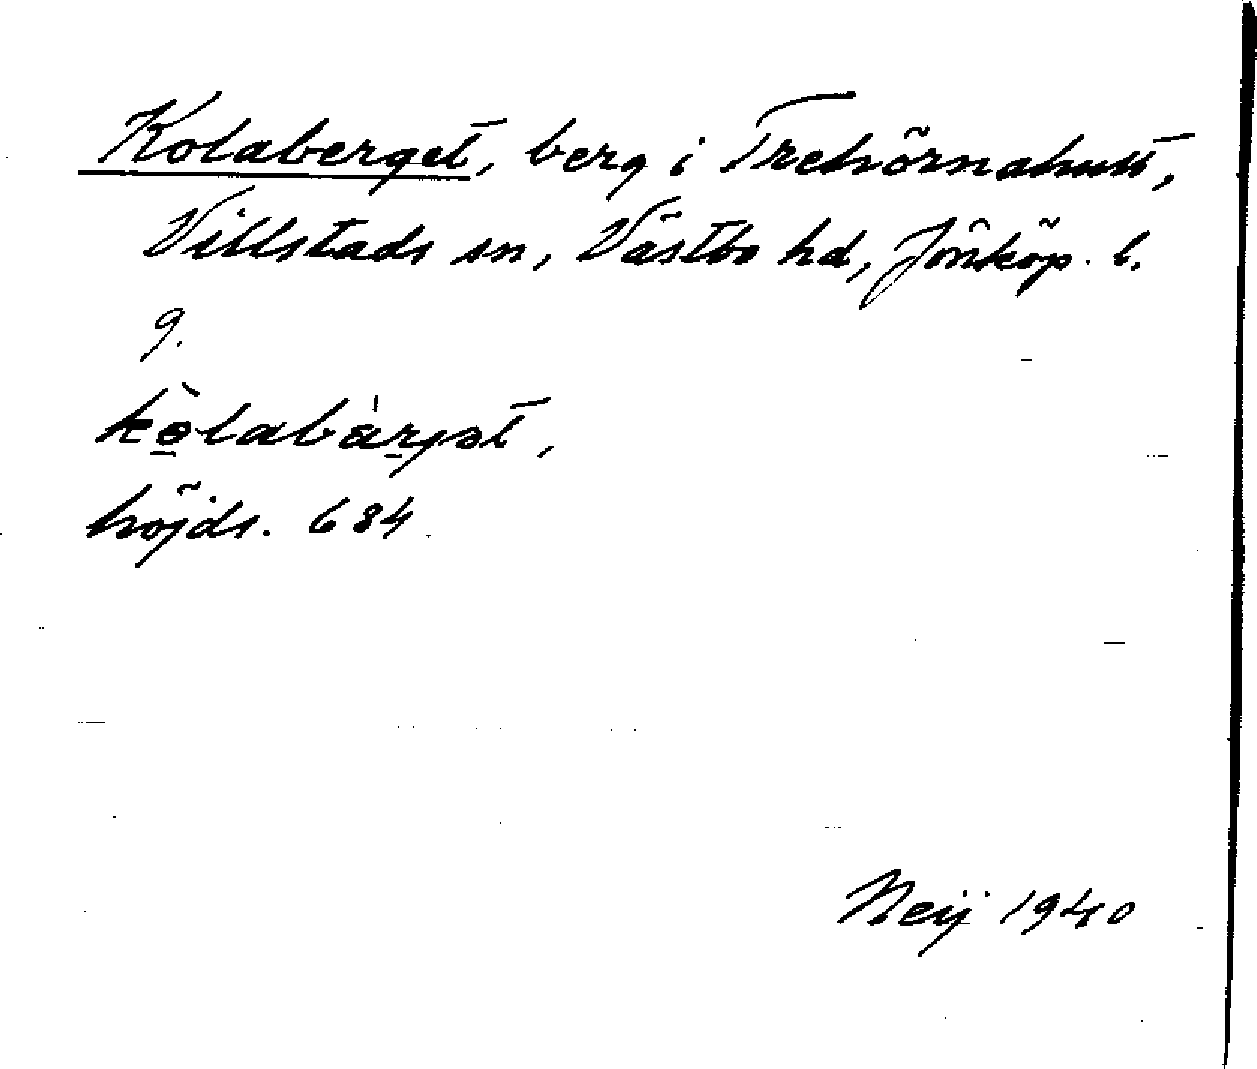 Kolaberget, berg i Trehörnahult,
Villstads sn, Västbo hd, Jönköp. l.
g.
kòlabàrjət,
höjds. 684
Neij 1940